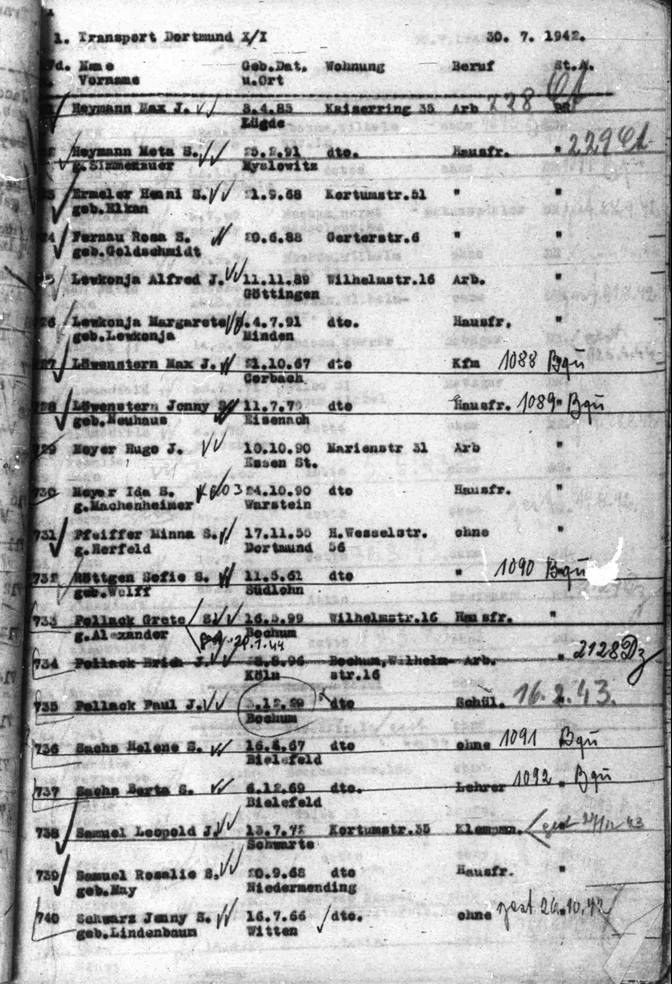 1. Transport Dortmund X/I 30. 7. 1942.
Name Geb.Dat. Wohnung Beruf St.A.
Vorname u.Ort
Heymann Max J. 3.4.85 Kaiserring 35 Arb 228
Lügde
Heymann Meta S. 25.2.91 dto. Hausfr. " 229
Myslowitz
Ermeler Henni S. 21.9.68 Kortumstr.51 " "
geb.Elkan
Fernau Rosa S. 20.6.88 Gerterstr.6 " "
geb.Goldschmidt
Lewkonja Alfred J. 11.11.89 Wilhelmstr.16 Arb. "
Göttingen
Lewkonja Margarete 4.7.91 dto. Hausfr. "
geb.Lewkonja Minden
Löwenstern Max J. 21.10.67 dto Kfm 1088 Bgü
Corbach
Löwenstern Jenny S. 11.7.79 dto Hausfr. 1089 Bgü
geb.Neuhaus Eisenach
Meyer Hugo J. 10.10.90 Marienstr 31 Arb "
Essen St.
730 Meyer Ida S. 24.10.90 dto Hausfr. "
g.Machenheimer Warstein
731 Pfeiffer Minna S. 17.11.55 H.Wesselstr. ohne "
g.Herfeld Dortmund 56
732 Röttgen Sofie S. 11.5.61 dto " 1090 Bgü
geb.Wolff Südlohn
733 Pollack Grete S. 16.5.99 Wilhelmstr.16 Hausfr. "
g.Alexander Bochum
734 Pollack Erich J. 28.8.96 Bochum,Wilhelm- Arb. " 2128 Dz
Köln str.16
735 Pollack Paul J. 3.12.29 dto Schül. 16.2.43.
Bochum
736 Sachs Helene S. 16.4.67 dto ohne 1091 Bgü
Bielefeld
737 Sachs Berta S. 6.12.69 dto Lehrer 1092 Bgü
Bielefeld
738 Samuel Leopold J. 13.7.72 Kortumstr.35 Klempn.
Schwarte
739 Samuel Rosalie S. 20.9.68 dto Hausfr. "
geb.May Niedermending
740 Schwarz Jenny S. 16.7.66 dto. ohne gest. 26.10.42
geb.Lindenbaum Witten